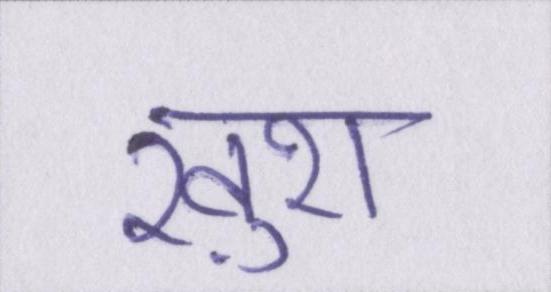 ख़ुश